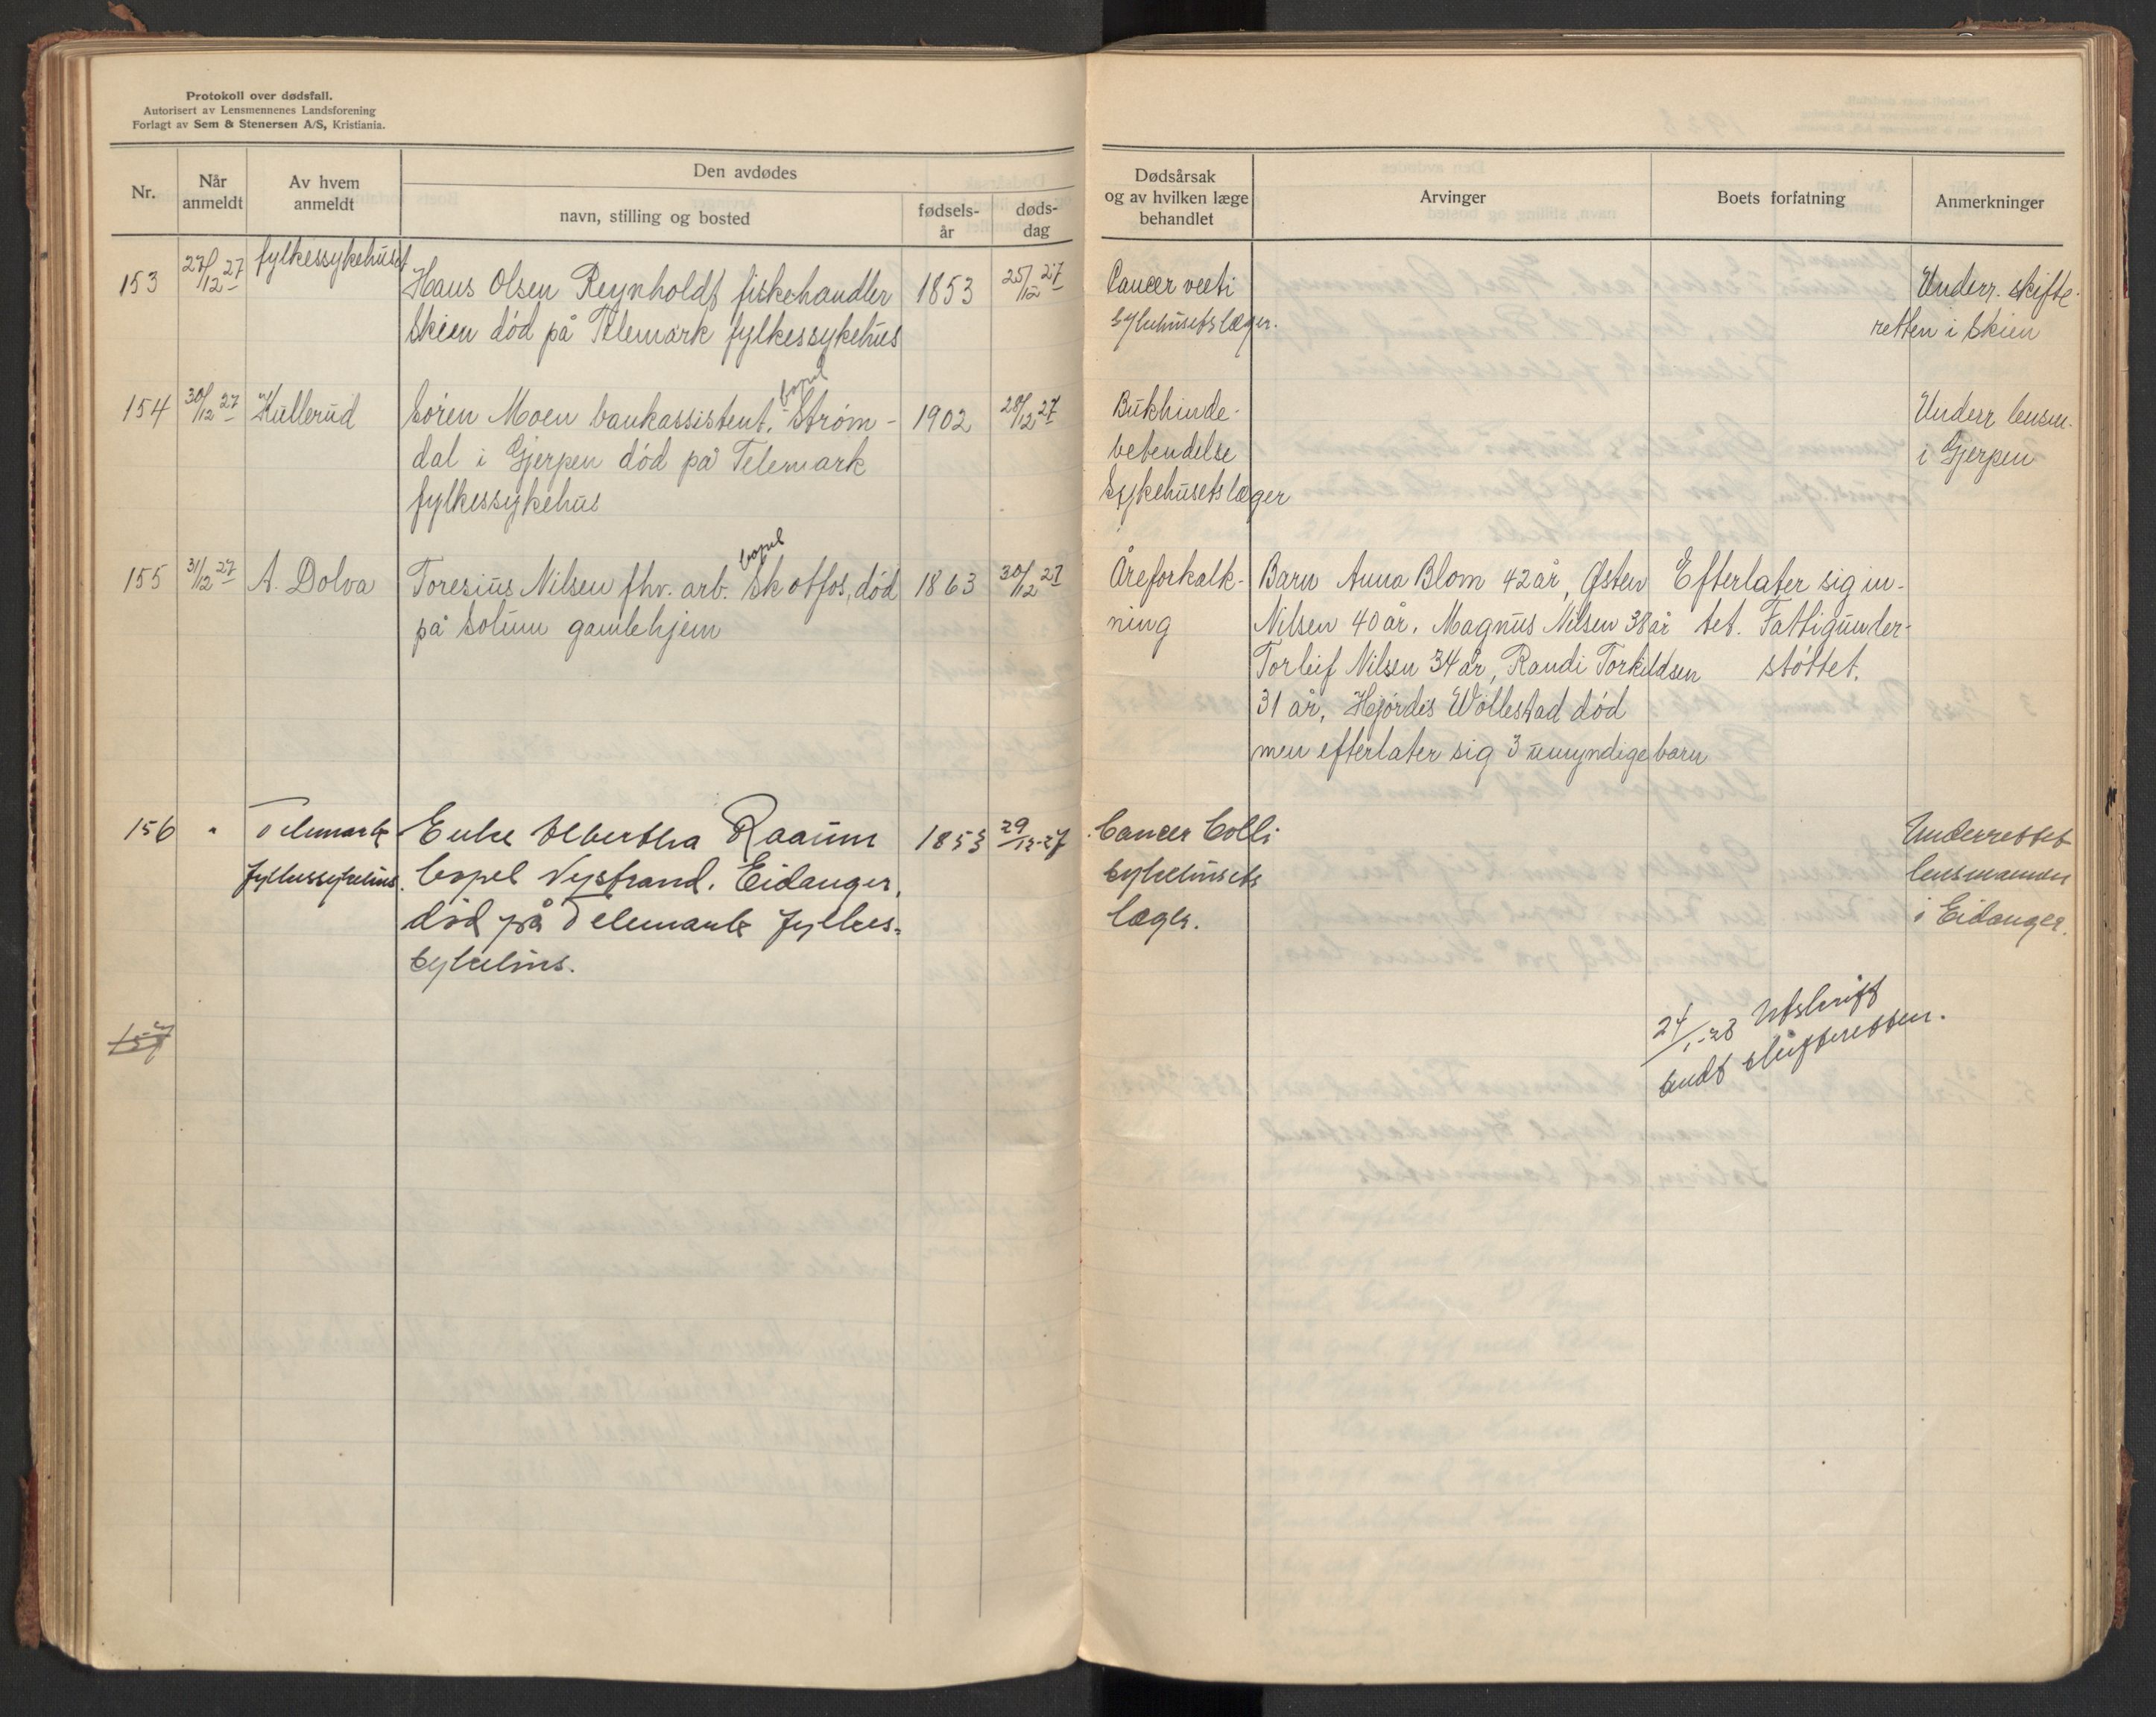 Protokoll over dødsfall.
Autorisert av Lensmennenes Landsforening
Forlagt av Sem & Stenersen A/S, Kristiania.
Nr.
Når anmeldt
Av hvem anmeldt
Den avdødes
navn, stilling og bosted
fødsels-år
døds-dag
Dødsårsak og av hvilken læge behandlet
Arvinger
Boets forfatning
Anmerkninger
153 27/12 27 fylkessykehuset
Hans Olsen Reynholdt fiskehandler 1853 25/12 27
Skien død på Telemark fylkessykehus
Cancer recti
Sykehusets læger.
Underr. skifte-
retten i Skien
154 30/12 27 Kullerud
Søren Moen bankassistent, bopel Strøm- 1902 28/12 27
dal i Gjerpen død på Telemark
fylkessykehus
Bukhinde-
betendelse
Sykehusets læger
Underr lensm.
i Gjerpen
155 31/12 27 A. Dolva
Toresius Nilsen fhv. arb. bopel Skotfos, død 1863 30/12 27
på Solum gamlehjem
Åreforkalk-
ning
Barn Anna Blom 42 år, Østen
Nilsen 40 år, Magnus Nilsen 38 år
Torleif Nilsen 34 år, Randi Torkildsen
31 år, Hjørdis Wollestad død
men efterlater sig 3 umyndige barn
Efterlater sig in-
tet. Fattigunder-
støttet.
156 " Telemark
fylkessykehus.
Enke Albertha Raaum 1853 29/12-27
bopel Nystrand, Eidanger,
død på Telemark fylkes-
sykehus.
Cancer Colli
sykehusets
læger.
Underrettet
lensmannen
i Eidanger.
24/1-28 Utskrift
sendt skifteretten.
157